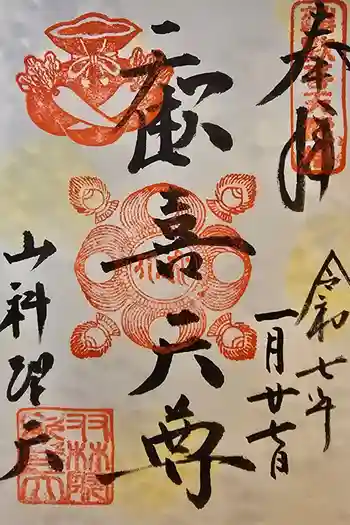 奉拝
歓喜天尊
令和七年
一月廿七日
山科聖天